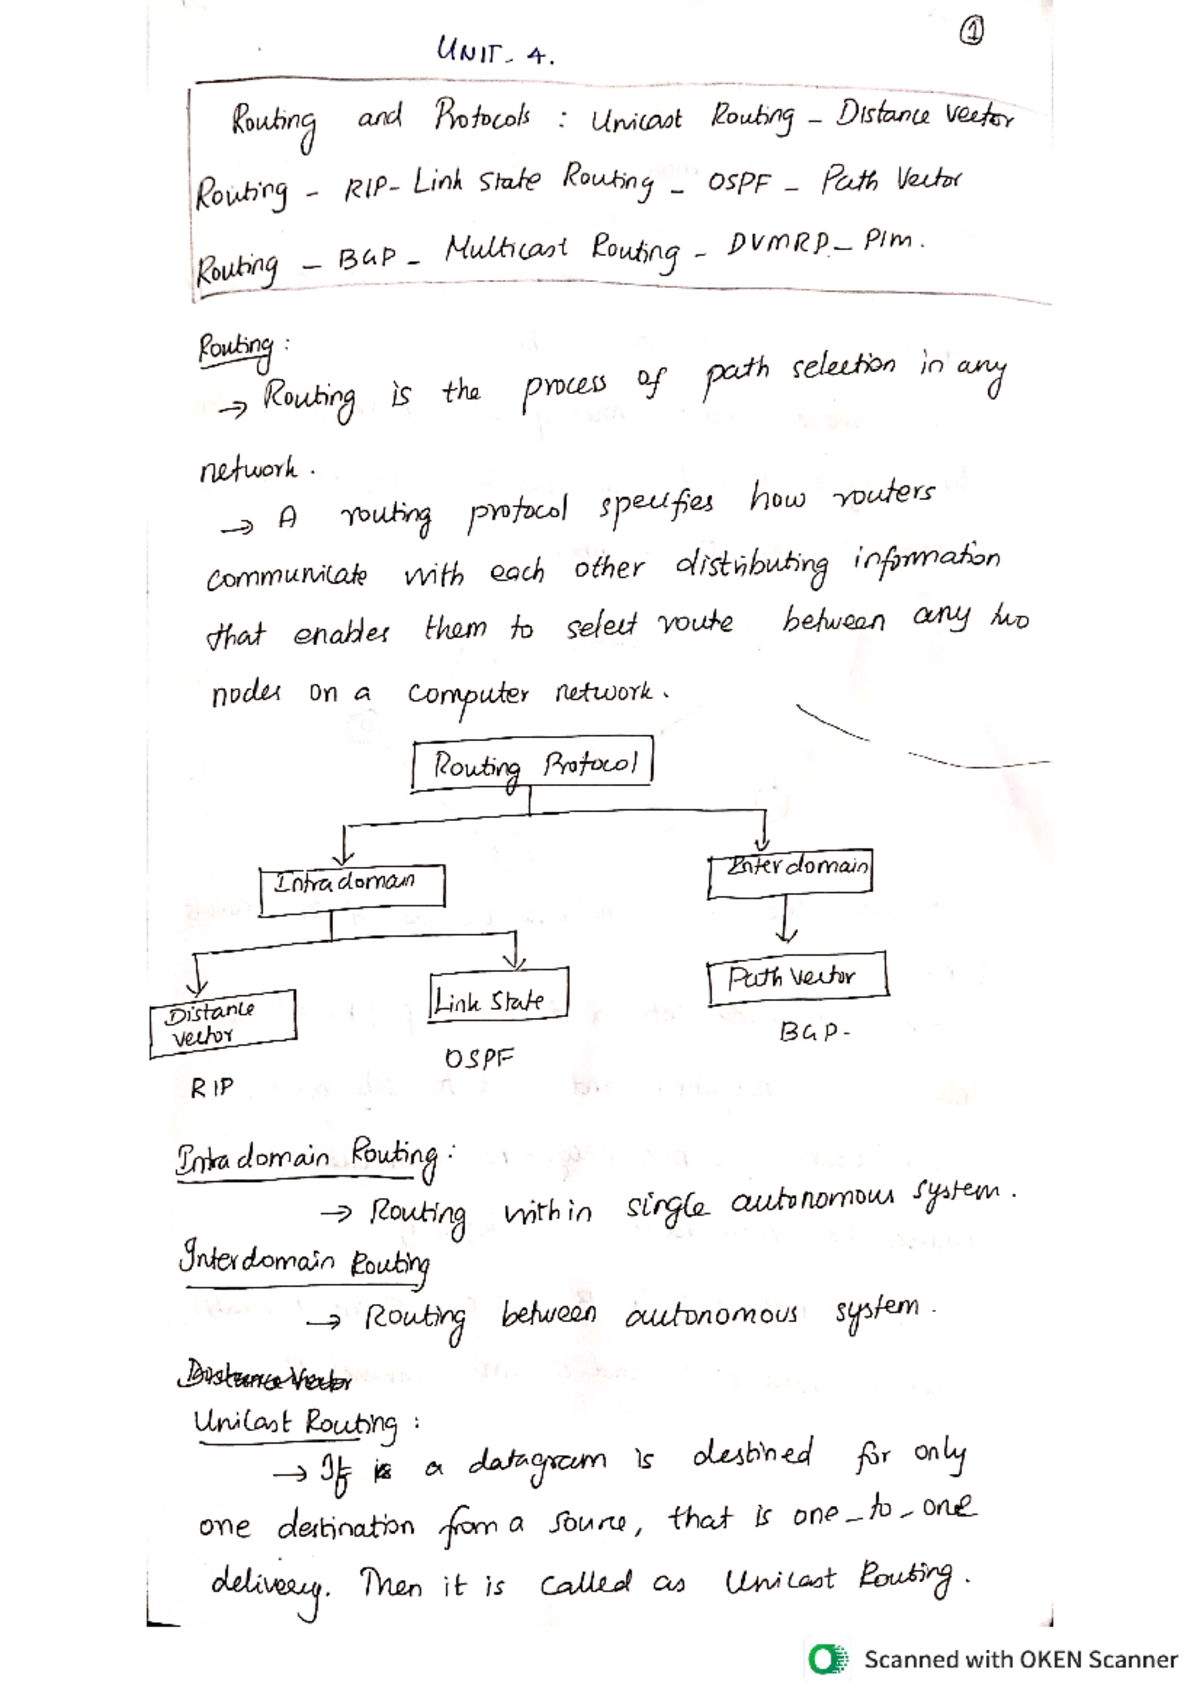 1
UNIT- 4.
Routing and Protocols : Unicast Routing - Distance Vector
Routing - RIP- Link State Routing - OSPF - Path Vector
Routing - BGP - Multicast Routing - DVMRP - PIM.
Routing :
→ Routing is the process of path selection in any
network.
→ A routing protocol specifies how routers
communicate with each other distributing information
that enables them to select route between any two
nodes on a computer network.
Routing Protocol
Intradomain
Interdomain
Distance
vector
Link State
Path Vector
RIP
OSPF
BGP-
Intradomain Routing :
→ Routing within single autonomous system.
Interdomain Routing
→ Routing between autonomous system.
Distance Vector
Unicast Routing :
→ If is a datagram is destined for only
one destination from a source, that is one-to-one
delivery. Then it is called as Unicast Routing.
Scanned with OKEN Scanner